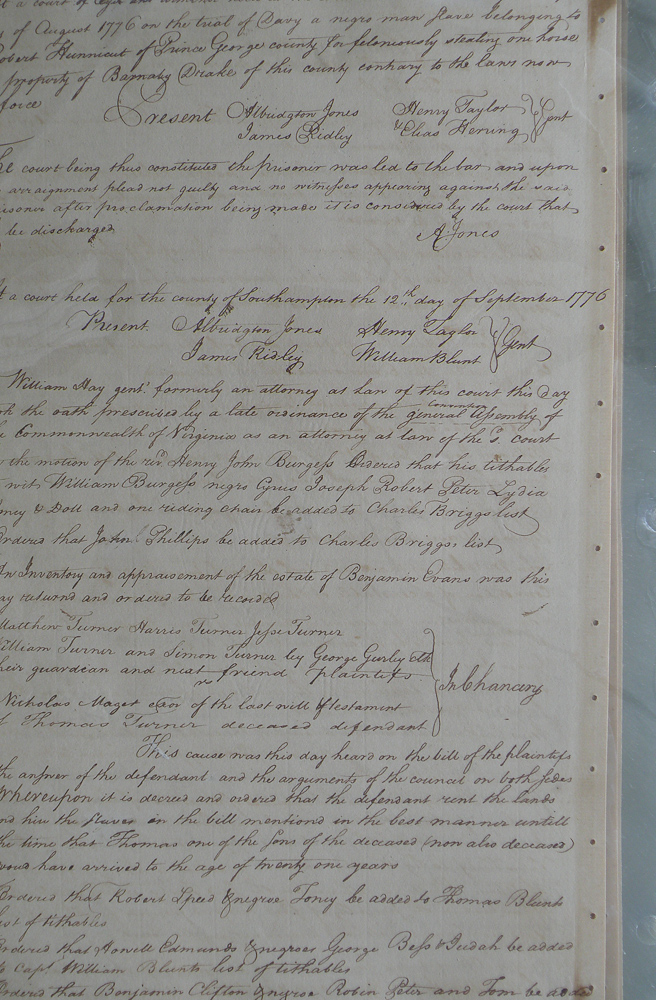 y of August 1776 on the trial of Davy a negro man slave belonging to
obert Hunnicut of Prince George county for feloniously stealing one horse
property of Barnaby Drake of this county contrary to the laws now
force
Present Albridgton Jones Henry Taylor } Gent
James Ridley & Elias Herring
e court being thus constituted the prisoner was led to the bar and upon
arraignment plead not guilty and no witnesses appearing against the said
isoner after proclamation being made it is considered by the court that
be discharged
A. Jones
t a court held for the county of Southampton the 12th day of September 1776
Present. Albridgton Jones Henry Taylor } Gent
James Ridley William Blunt
William Hay gent. formerly an attorney at Law of this court this Day
ok the oath prescribed by a late ordinance of the general Assembly of
e Commonwealth of Virginia as an attorney at law of the sd. court
the motion of the revd Henry John Burgess Ordered that his tithables
wit William Burgess negro Cyrus Joseph Robert Peter Lydia
& Doll and one riding chair be added to Charles Briggs list
Ordered that John Phillips be added to Charles Briggs's list
An Inventory and appraisement of the estate of Benjamin Evans was this
ay returnd and ordered to be recorded
Matthew Turner Harris Turner Jesse Turner
William Turner and Simon Turner by George Gurley
heir guardian and next friend plaintifs
} In Chancery
Nicholas Maget exor of the last will & testament
f Thomas Turner deceased defendant
This cause was this day heard on the bill of the plaintifs
the answer of the defendant and the arguments of the council on both sides
Whereupon it is decreed and ordered that the defendant rent the lands
nd hire the slaves in the bill mentiond in the best manner untill
he time that Thomas one of the sons of the deceased (now also deceased)
woud have arrived to the age of twenty one years
Ordered that Robert Speed & negroe Toney be added to Thomas Blunts
list of tithables
Ordered that Howell Edmunds & negroes George Bess & Judah be added
to Capt. William Blunts list of tithables
Ordered that Benjamin Clifton & negroe Robin Peter and Tom be added